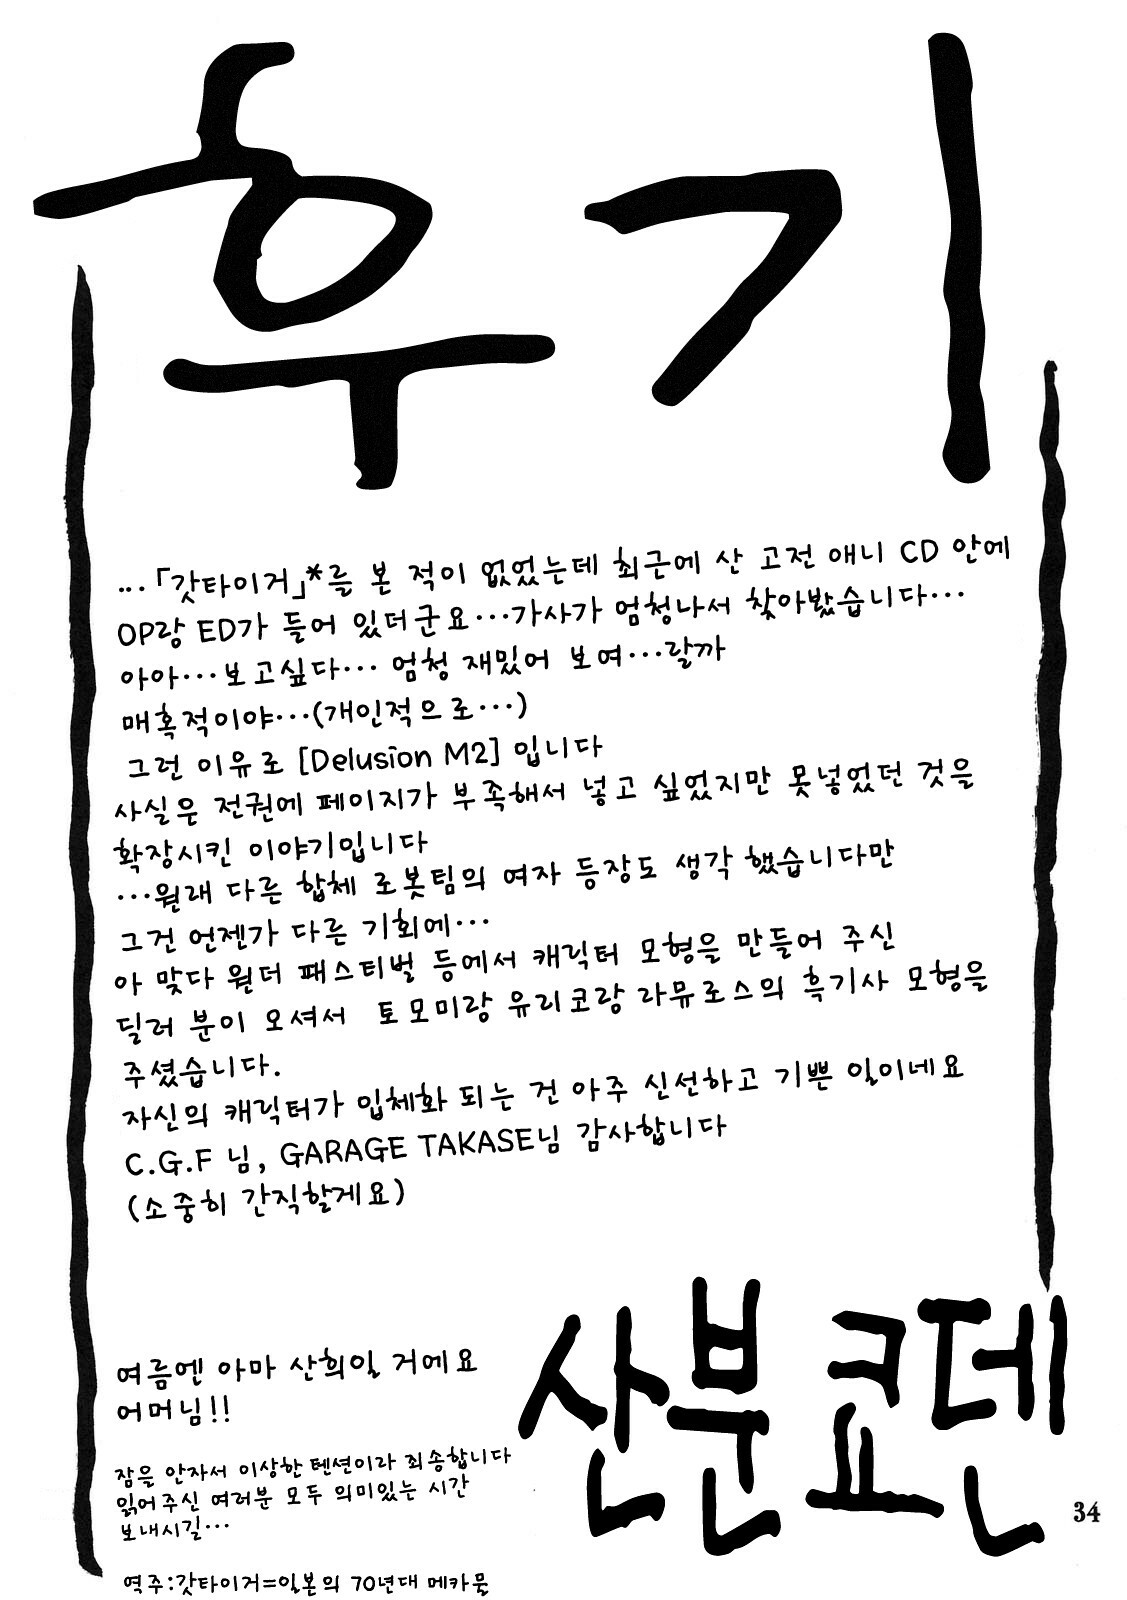 후기
…「갓타이거」*를 본 적이 없었는데 최근에 산 고전 애니 CD 안에
OP랑 ED가 들어 있더군요…가사가 엄청나서 찾아봤습니다…
아아…보고싶다… 엄청 재밌어 보여…랄까
매혹적이야…(개인적으로…)
그런 이유로 [Delusion M2] 입니다
사실은 전권에 페이지가 부족해서 넣고 싶었지만 못넣었던 것을
확장시킨 이야기입니다
…원래 다른 합체 로봇팀의 여자 등장도 생각 했습니다만
그건 언젠가 다른 기회에…
아 맞다 원더 패스티벌 등에서 캐릭터 모형을 만들어 주신
딜러 분이 오셔서 토모미랑 유리코랑 라뮤로스의 흑기사 모형을
주셨습니다.
자신의 캐릭터가 입체화 되는 건 아주 신선하고 기쁜 일이네요
C.G.F 님, GARAGE TAKASE님 감사합니다
(소중히 간직할게요)
여름엔 아마 산희일 거에요
어머님!!
산분 쿄덴
잠을 안자서 이상한 텐션이라 죄송합니다
읽어주신 여러분 모두 의미있는 시간
보내시길…
34
역주:갓타이거=일본의 70년대 메카물